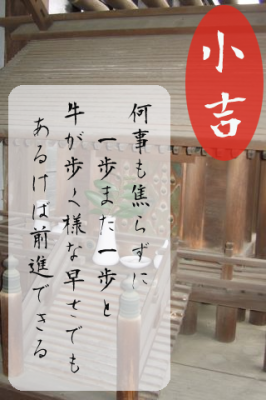 小吉
何事も焦らずに
一歩また一歩と
牛が歩く様な早さでも
あるけば前進できる